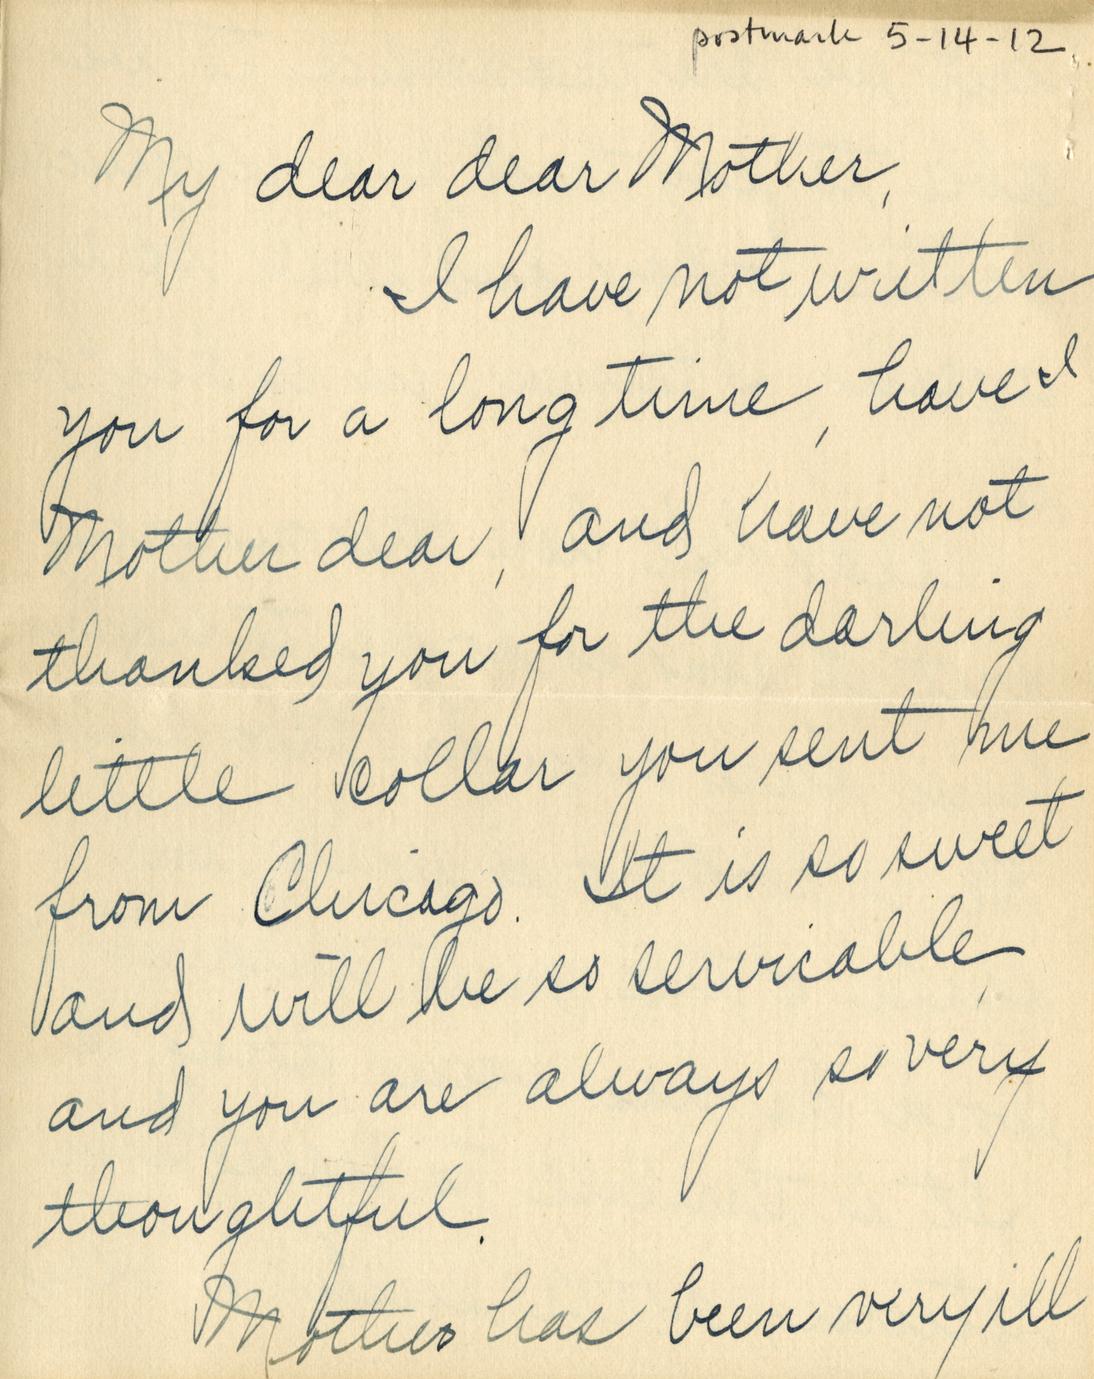 postmark 5-14-12.
My dear dear Mother,
I have not written
you for a long time, have I
Mother dear, and have not
thanked you for the darling
little collar you sent me
from Chicago. It is so sweet
and will be so servicable,
and you are always so very
thoughtful.
Mother has been very ill